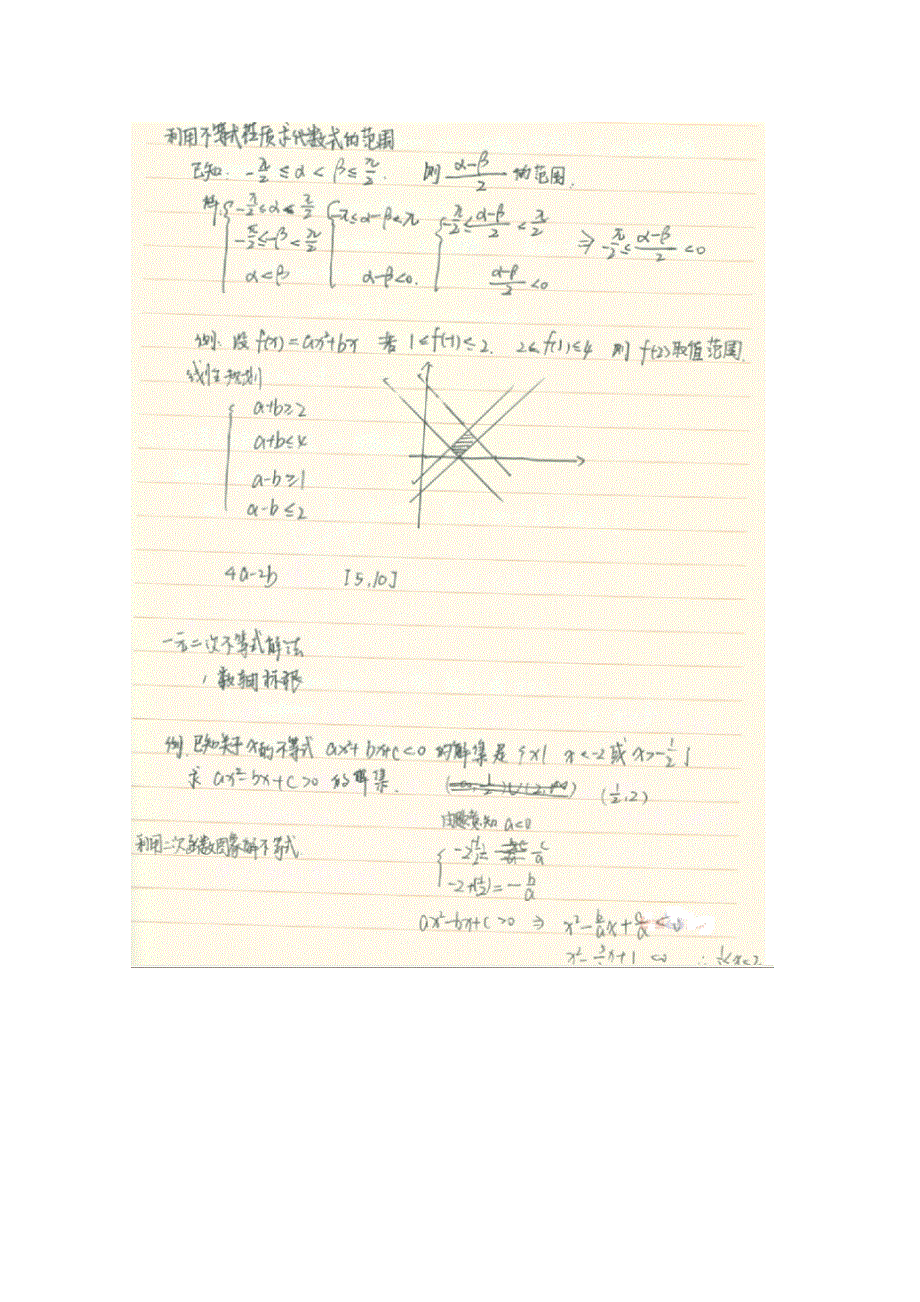 利用不等式性质求代数式的范围
已知: -π/2 ≤ α < β ≤ π/2. 则 (α-β)/2 的范围.
解: { -π/2 ≤ α < π/2 { -π ≤ α-β < π { -π/2 ≤ (α-β)/2 < π/2
-π/2 ≤ -β < π/2 ⇒ -π/2 ≤ (α-β)/2 < 0
α < β α-β < 0. (α-β)/2 < 0
例: 设 f(x) = ax²+bx 若 1 ≤ f(-1) ≤ 2. 2 ≤ f(1) ≤ 4 则 f(-2) 取值范围.
线性规划
{ a+b ≥ 2
a+b ≤ 4
a-b ≥ 1
a-b ≤ 2
4a-2b [5,10]
一元二次不等式解法
数轴标根
例. 已知关于x的不等式 ax²+bx+c<0 的解集是 {x| x<-2 或 x>-1/2}
求 ax²-bx+c>0 的解集. (1/2,2)
由题意知 a<0
利用二次函数图象解不等式
{ -2(-1/2) = c/a
-2+(-1/2) = -b/a
ax²-bx+c>0 ⇒ x²-(b/a)x+c/a<0
x²-(5/2)x+1<0 ∴ 1/2<x<2